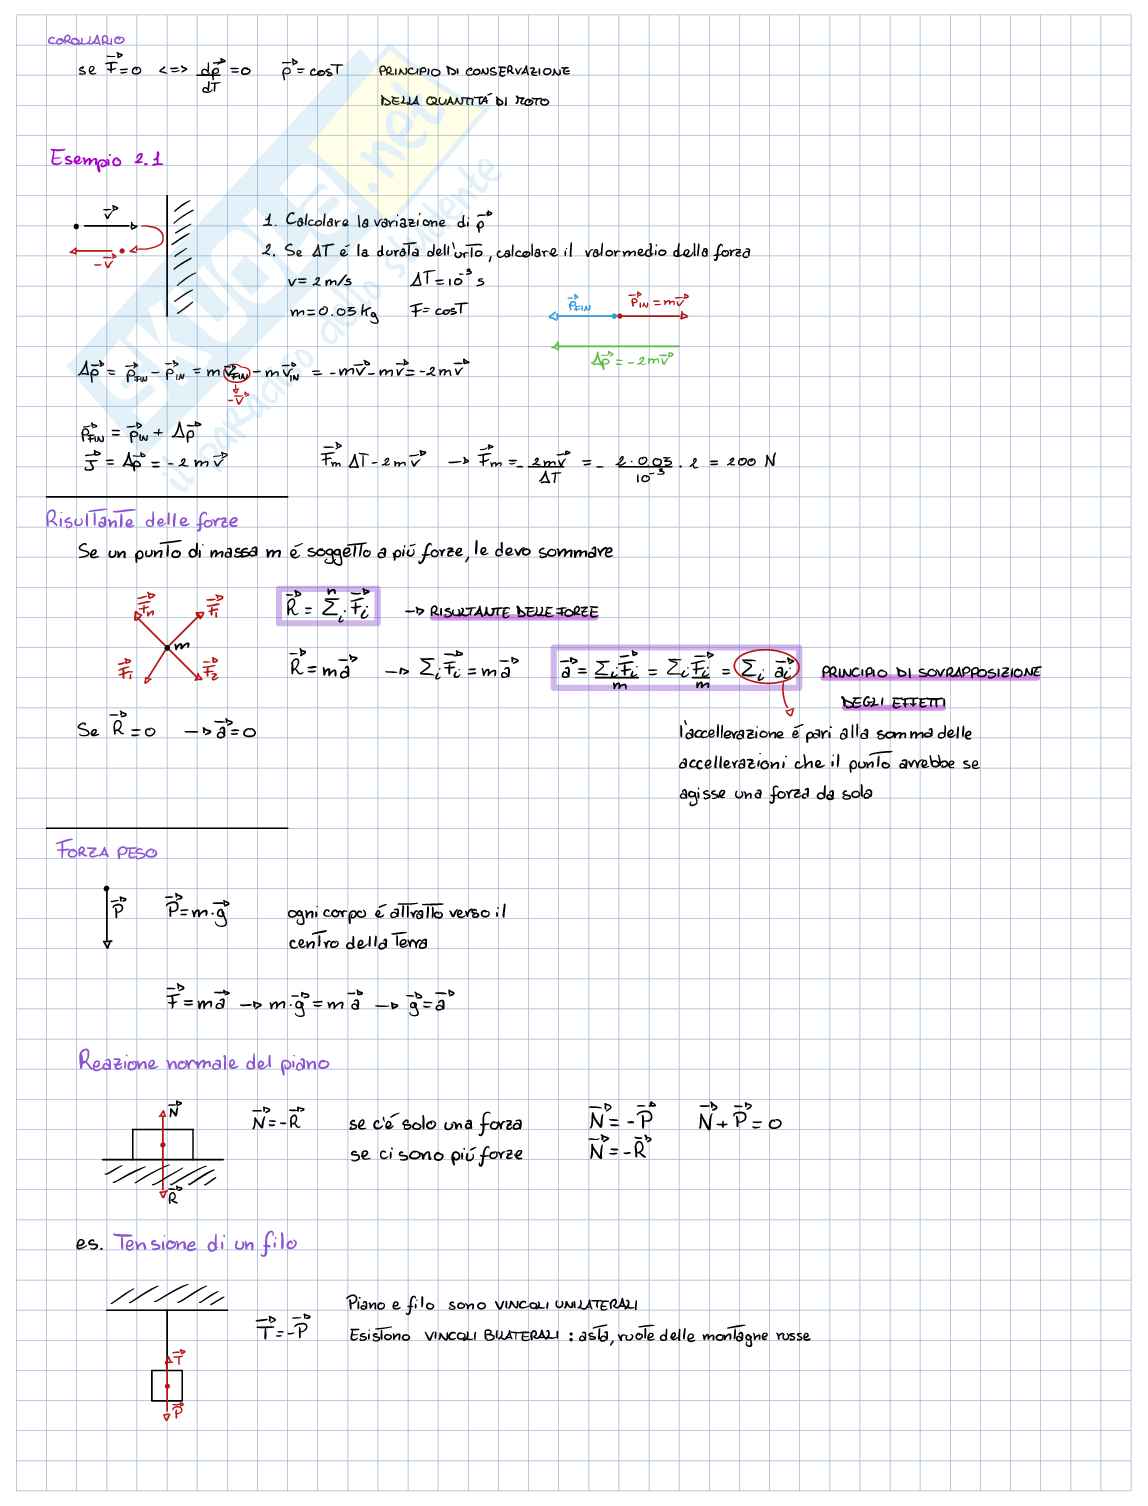 COROLLARIO
se F⃗=0 <=> dp⃗/dT =0 p⃗=cosT PRINCIPIO DI CONSERVAZIONE
DELLA QUANTITÁ DI MOTO
Esempio 2.1
v⃗
-v⃗
1. Calcolare la variazione di p⃗
2. Se ΔT é la durata dell'urto, calcolare il valor medio della forza
v=2m/s ΔT=10⁻³ s
m=0.05 kg F=cosT
p⃗FIN p⃗IN=mv⃗
Δp⃗=-2mv⃗
Δp⃗= p⃗FIN - p⃗IN = m v⃗FIN - m v⃗IN = -mv⃗-mv⃗=-2mv⃗
-v⃗
p⃗FIN = p⃗IN + Δp⃗
J⃗ = Δp⃗ = -2mv⃗ F⃗m ΔT-2mv⃗ → F⃗m = - 2mv⃗/ΔT = - 2·0.03/10⁻³ · 2 = 200 N
Risultante delle forze
Se un punto di massa m é soggetto a piú forze, le devo sommare
F⃗n F⃗1
m
F⃗1 F⃗2
R⃗ = Σⁿi F⃗i → RISULTANTE DELLE FORZE
R⃗ = ma⃗ → Σi F⃗i = ma⃗ a⃗ = Σi F⃗i/m = Σi F⃗i/m = Σi a⃗i PRINCIPIO DI SOVRAPPOSIZIONE
DEGLI EFFETTI
Se R⃗=0 → a⃗=0
l'accellerazione é pari alla somma delle
accellerazioni che il punto avrebbe se
agisse una forza da sola
FORZA PESO
P⃗ P⃗=m·g⃗ ogni corpo é attratto verso il
centro della Terra
F⃗=ma⃗ → m·g⃗=ma⃗ → g⃗=a⃗
Reazione normale del piano
N⃗
R⃗
N⃗=-R⃗ se c'é solo una forza N⃗=-P⃗ N⃗+P⃗=0
se ci sono piú forze N⃗=-R⃗
es. Tensione di un filo
Piano e filo sono VINCOLI UNILATERALI
T⃗=-P⃗ Esistono VINCOLI BILATERALI : asta, ruote delle montagne russe
T⃗
P⃗
SKUOLA.net